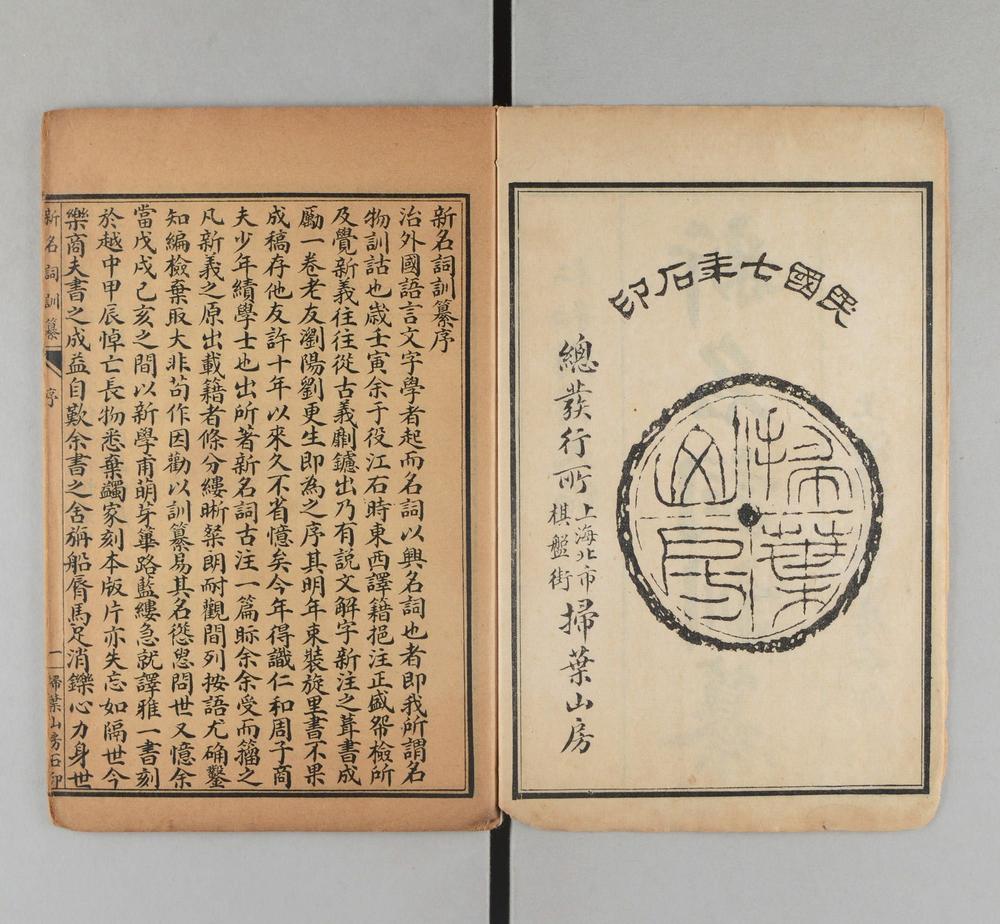 民國七年石印
掃葉山房
總發行所
上海北市
棋盤街
掃葉山房
新名詞訓纂序
治外國語言文字學者起而名詞以興名詞也者即我所謂名
物訓詁也歲壬寅余于役江石時東西譯籍挹注正盛帤檢所
及覺新義往往從古義劘鑢出乃有説文解字新注之葺書成
勵一卷老友瀏陽劉更生即為之序其明年東裝旋里書不果
成稿存他友許十年以來久不省憶矣今年得識仁和周子商
夫少年績學士也出所著新名詞古注一篇眎余余受而籀之
凡新義之原出載籍者條分縷晰粲朗耐觀間列按語尤确鑿
知編檢棄取大非苟作因勸以訓纂易其名慫恿問世又憶余
當戊戌己亥之間以新學甫萌芽篳路藍縷急就譯雅一書刻
於越中甲辰悼亡長物悉棄蠲家刻本版片亦失忘如隔世今
樂商夫書之成益自歎余書之舍旃船脣馬足消鑠心力身世
新名詞訓纂
序
一
掃葉山房石印